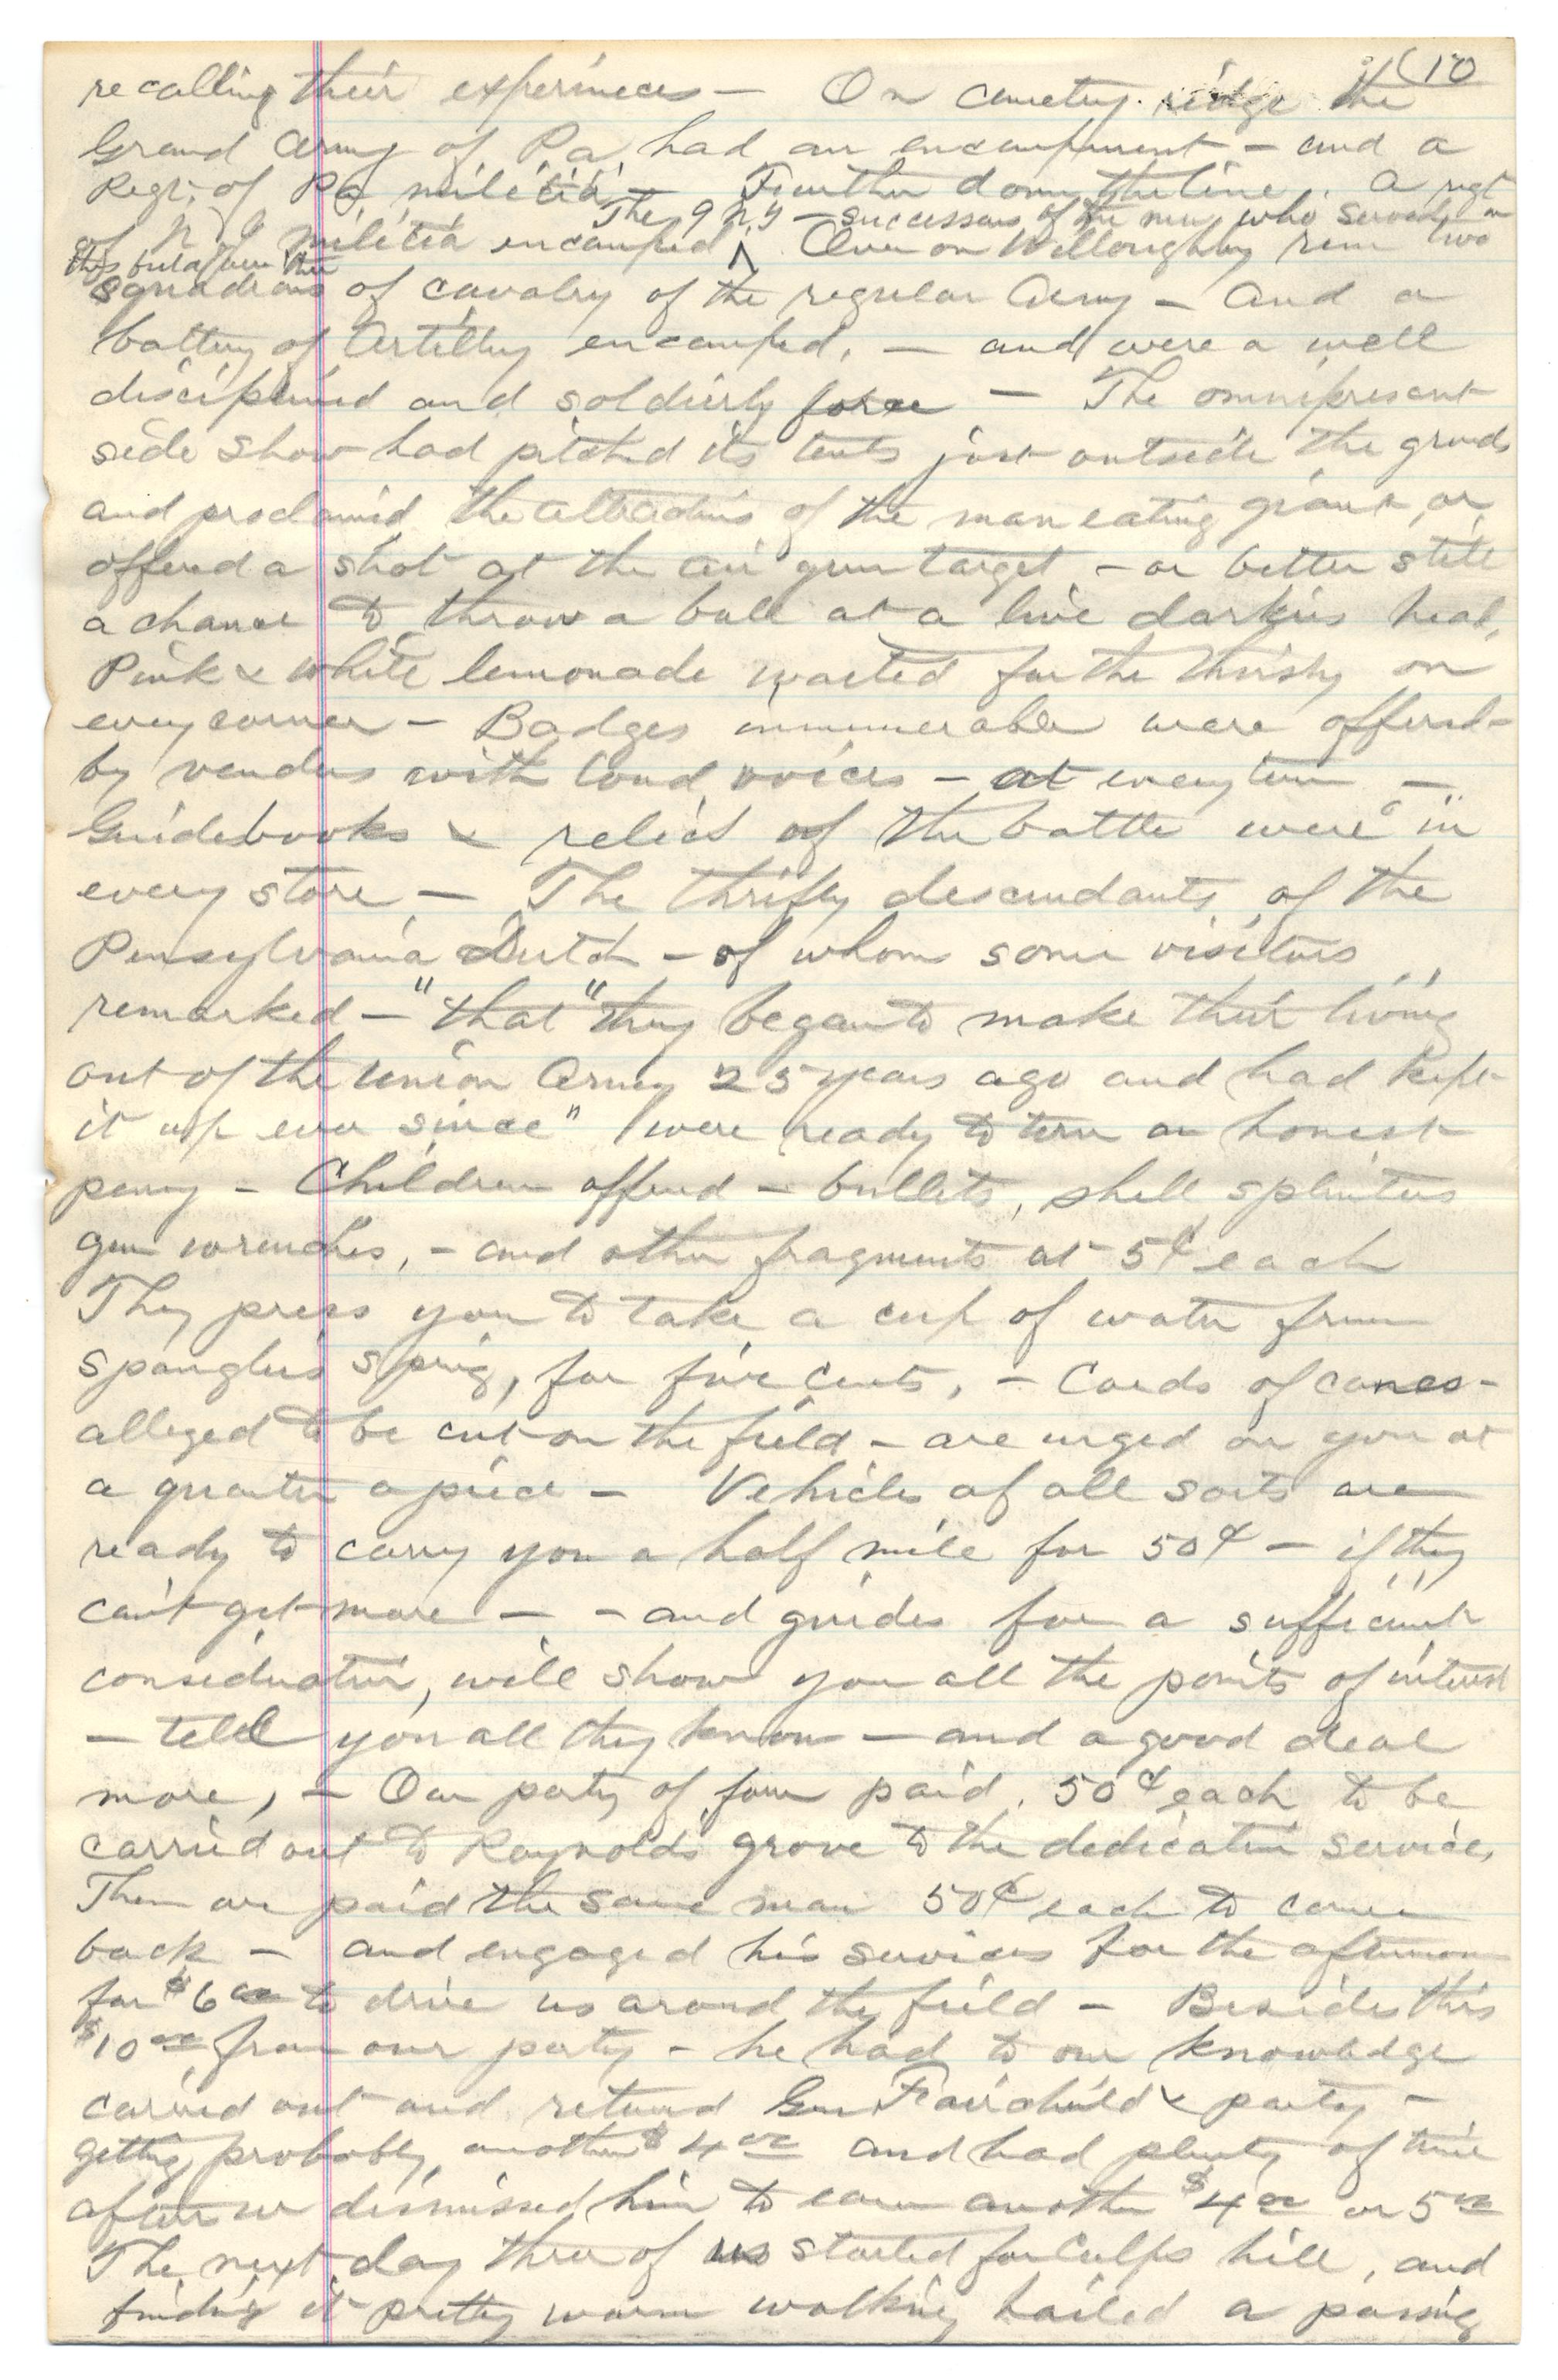 (10
recalling their experinces — On Cemetery ridge the
Grand Army of Pa. had an encampment — and a
Regt. of Pa militia — Further down the line. A regt
The 9 N.Y — successors of the men who served in
of N. Y militia encamped ^ Over on Willoughby run two
this
squadrons of cavalry of the regular Army — and a
battery of Artillery encamped, — and were a well
disciplined and soldierly force — The omnipresent
side show had pitched its tents just outside the grnds
and proclaimed the attractions of the man eating giant, or
offered a shot at the air gun target, — or better still
a chance to throw a ball at a live darkies head,
Pink & white lemonade waited for the thirsty on
every corner — Badges innumerable were offered
by vendors with loud voices — at every turn —
Guidebooks & relics of the battle were in
every store — The thrifty descendants of the
Pensylvania Dutch — of whom some visitors
remarked — "that" they began to make their living
out of the Union Army 25 years ago and had kept
it up ever since" were ready to turn an honest
penny — Children offered — bullets, shell splinters
gun wrenches, — and other fragments at 5¢ each
They press you to take a cup of water from
Spanglers Spring, for five cents, — Cards of canes —
alleged to be cut on the field — are urged on you at
a quarter apiece — Vehicles of all sorts are
ready to carry you a half mile for 50¢ — if they
can't get more — — and guides for a sufficient
consideration, will show you all the points of interest
— tell you all they know — and a good deal
more, — Our party of four paid, 50¢ each to be
carried out to Raynolds grove to the dedication service,
Then we paid the same man 50¢ each to come
back — and engaged his services for the afternoon
for $6 00 to drive us around the field — Besides this
$10 00 from our party — he had to our knowledge
carried out and returned Gen Fairchild & party —
getting probably another $4 00 and had plenty of time
after we dismissed him to earn another $4 00 or 5 00
The next day three of us started for Culps hill, and
finding it pretty warm walking hailed a passing